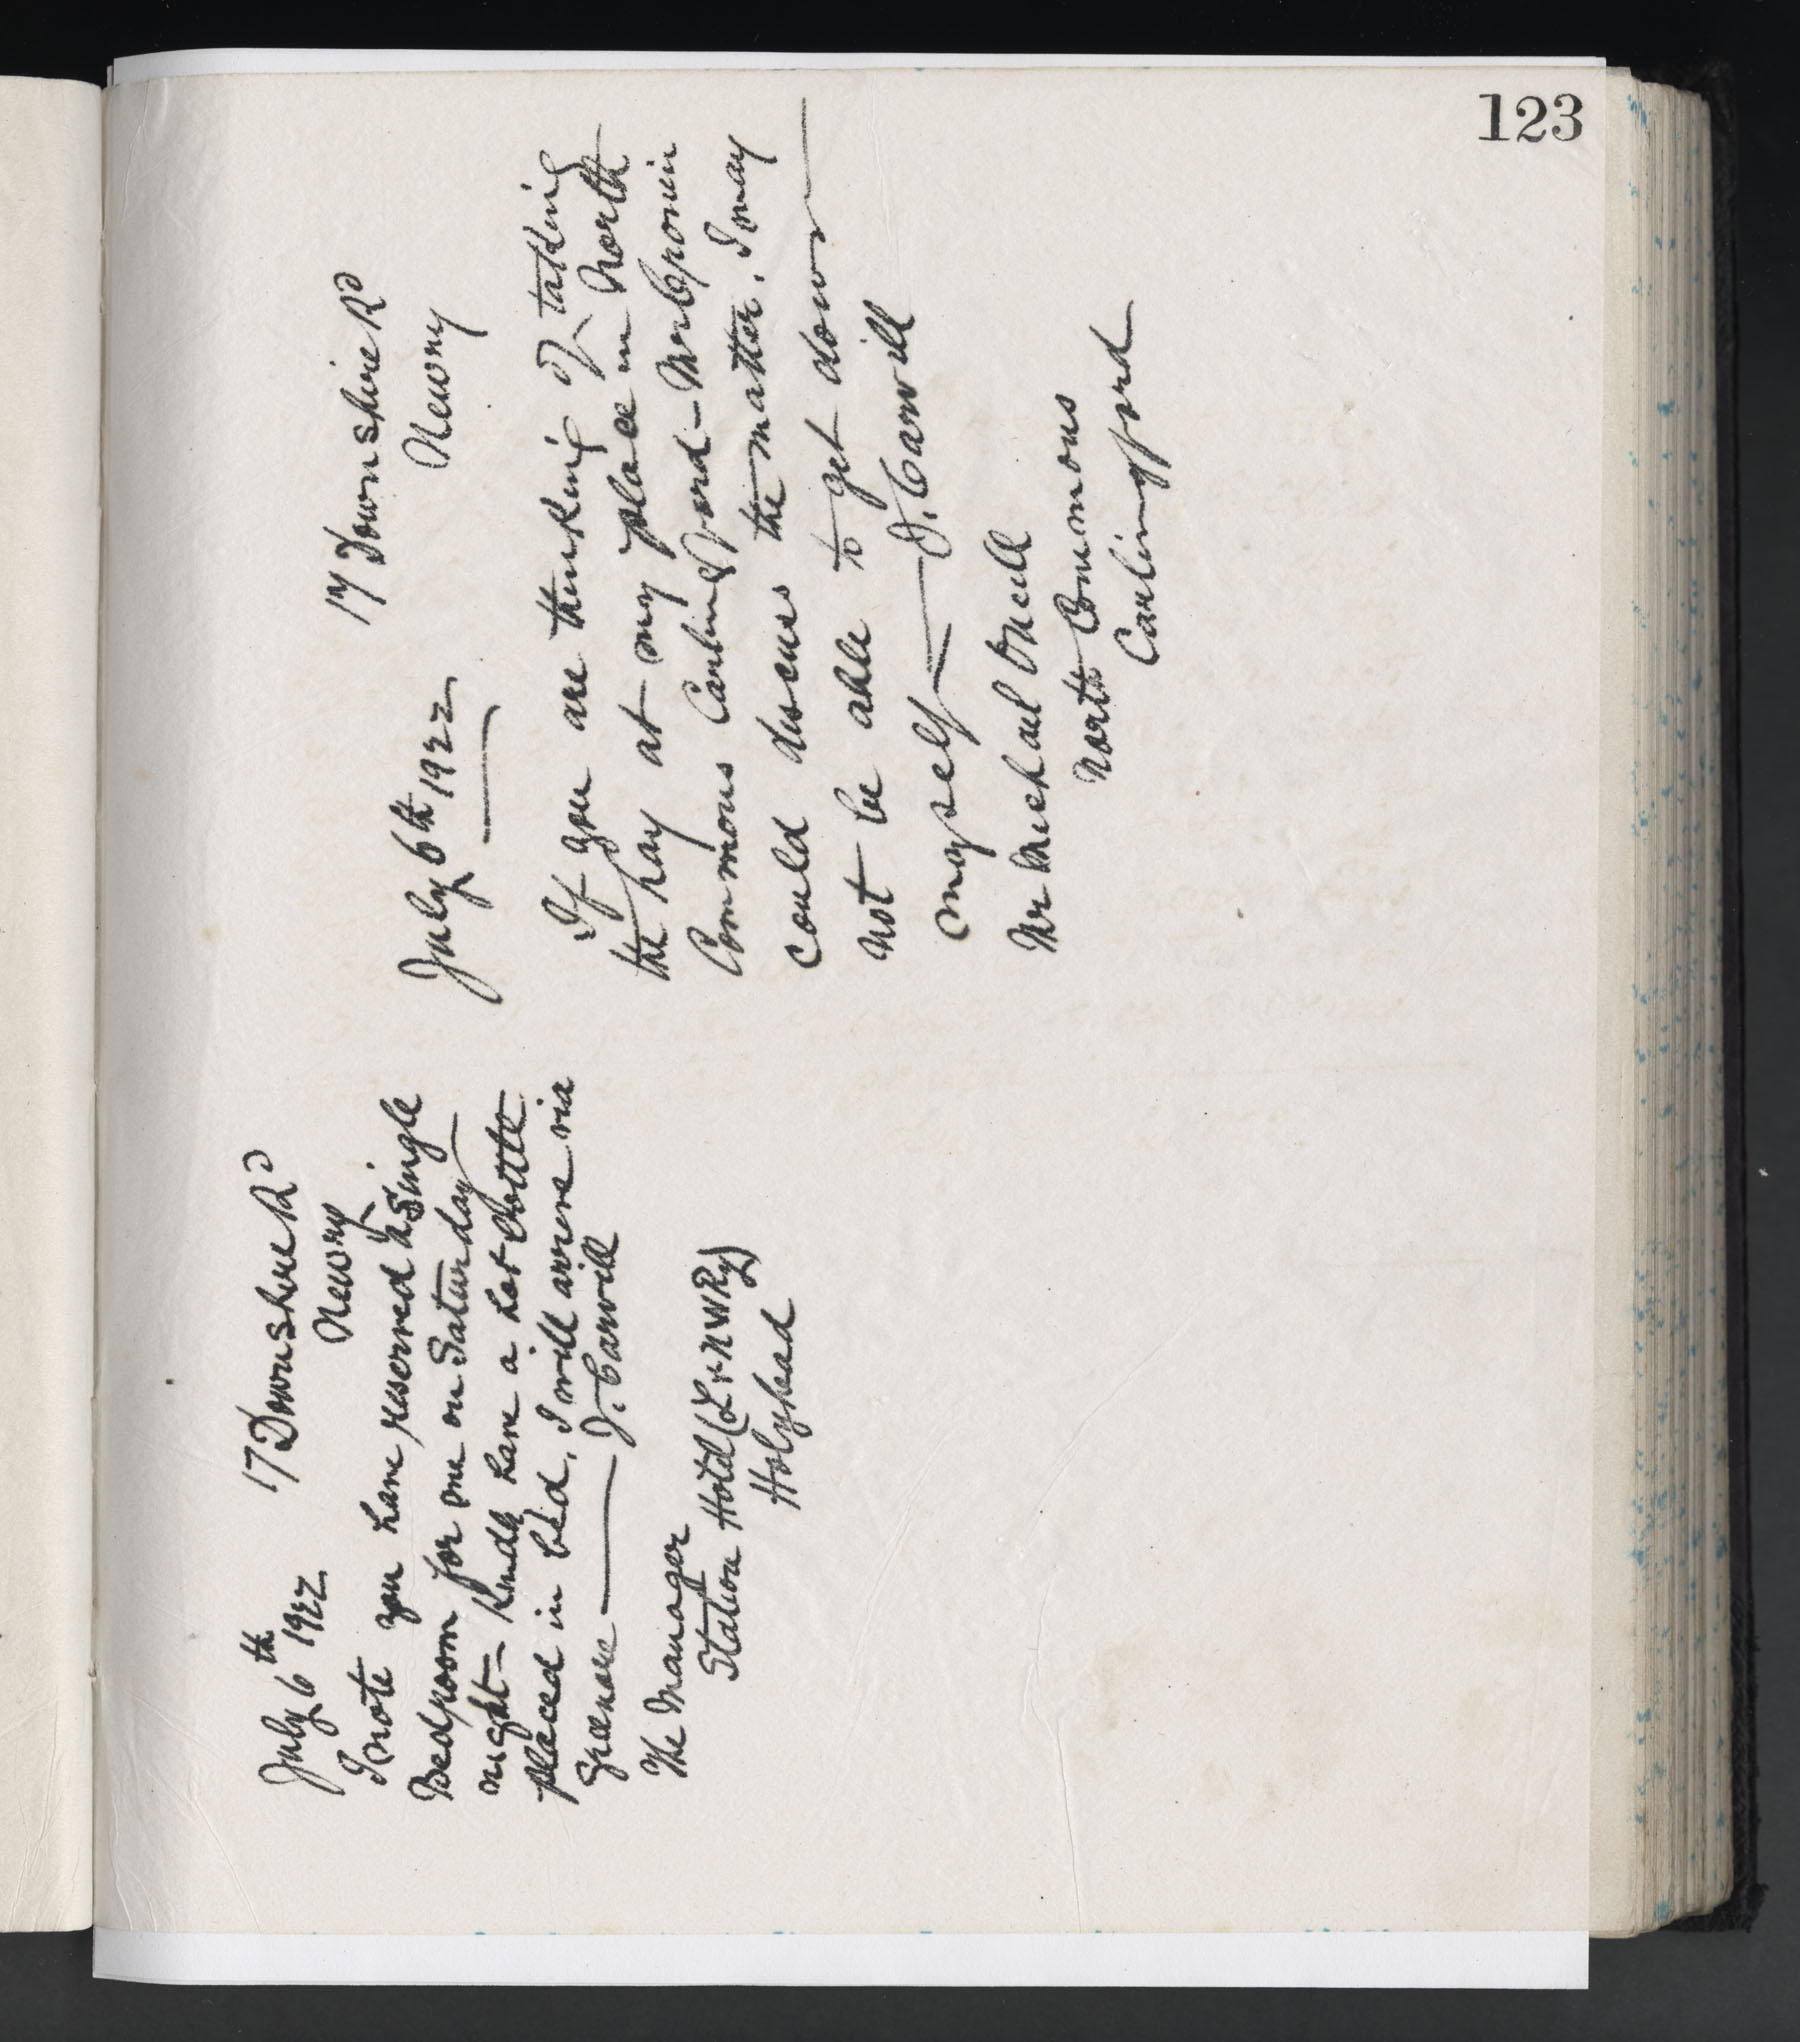 123
July 6th 17 Downshire Rd
1922 Newry
I note you have reserved a single
Bedroom for me on Saturday
night - Kindly have a hot bottle
placed in bed, I will arrive via
Greenore — J. Carvill
The Manager
Station Hotel (L & N W Ry)
Holyhead
17 Downshire Rd
July 6th 1922 Newry
If you are thinking of taking
the hay at my place in North
Commons Carlingford - Mr Cronin
could discuss the matter. I may
not be able to get down
myself — J. Carvill
Mr Michael O'Neill
North Commons
Carlingford